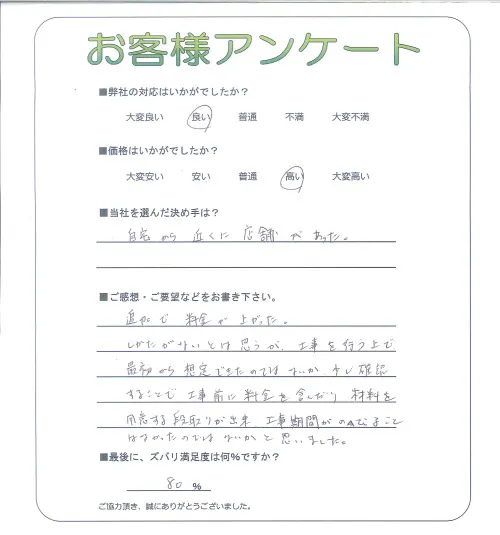 お客様アンケート
■弊社の対応はいかがでしたか？
大変良い 良い 普通 不満 大変不満
■価格はいかがでしたか？
大変安い 安い 普通 高い 大変高い
■当社を選んだ決め手は？
自宅から近くに店舗があった。
■ご感想・ご要望などをお書き下さい。
追加で料金が上がった。
しかたがないとは思うが、工事を行う上で
最初から想定できたのではないか、少し確認
することで工事前に料金を含んだり材料を
用意する段取りが出来、工事期間がのびること
はなかったのではないかと思いました。
■最後に、ズバリ満足度は何%ですか？
80 %
ご協力頂き、誠にありがとうございました。